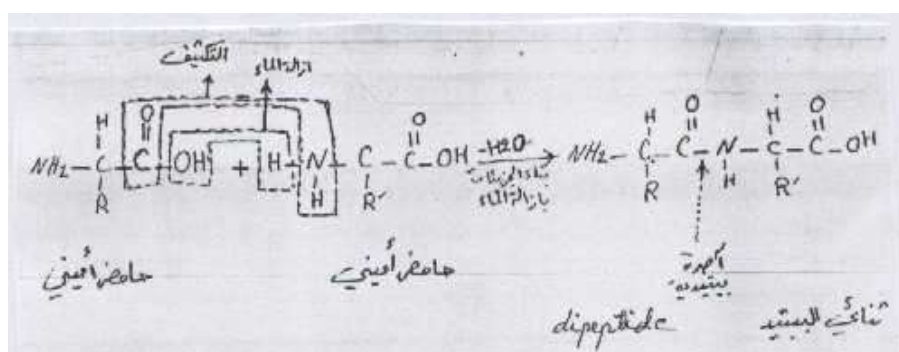 التكثيف
ازالة الماء
H O O H H O O
NH₂ - C - C - OH + H - N - C - C - OH -H2O NH₂ - C - C - N - C - C - OH
R H R' R H R'
بازالة الماء
حامض أميني
حامض أميني
أصرة
ببتيدية
dipeptide
ثنائي الببتيد